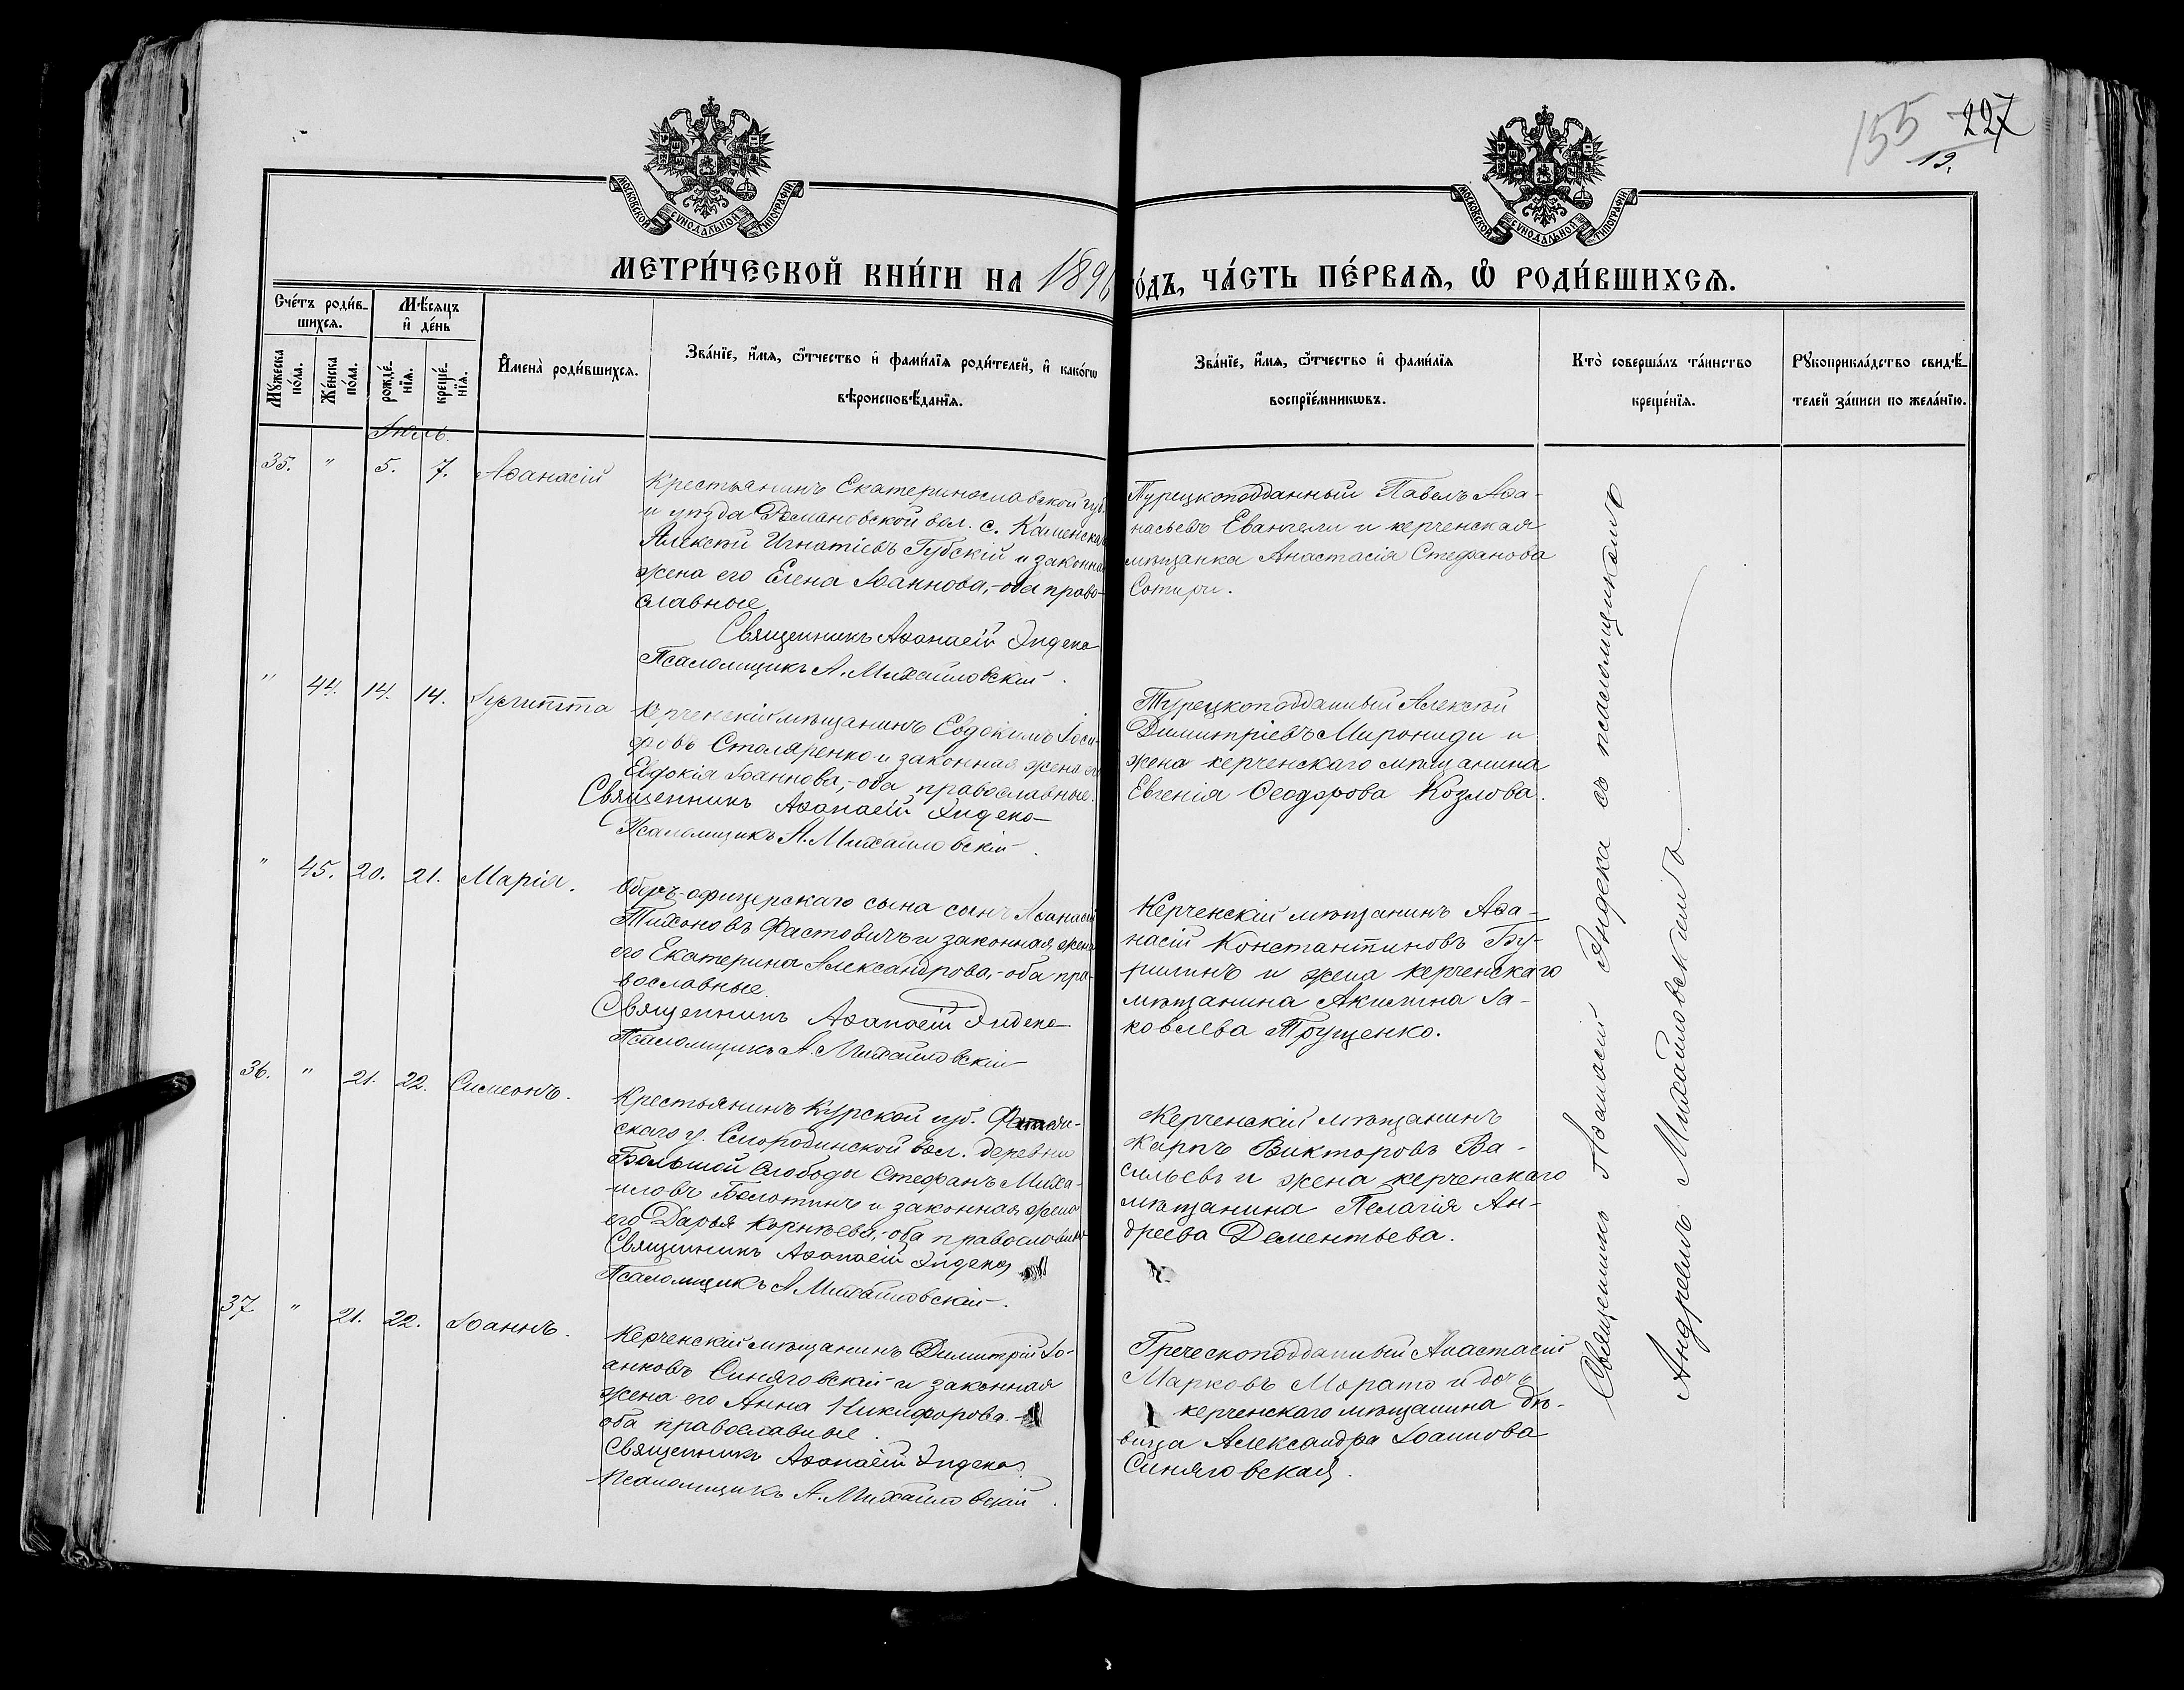 155 227
19.
МОСКОВСКОЙ СѴНОДАЛЬНОЙ ТИПОГРАФІИ
МОСКОВСКОЙ СѴНОДАЛЬНОЙ ТИПОГРАФІИ
МЕТРИ́ЧЕСКОЙ КНИ́ГИ НА 1896 ГО́ДЪ, ЧА́СТЬ ПЕ́РВАѦ, Ѽ РОДИ́ВШИХСѦ.
Сче́тъ роди́в-
шихсѧ.
Мѣ́сѧцъ
и҆ де́нь
Мꙋ́жеска по́ла.
Же́нска по́ла.
рожде́-
нїѧ.
креще́-
нїѧ.
И҆мена̀ роди́вшихсѧ.
Зва́нїе, и҆́мѧ, ѻ҆́тчество и҆ фами́лїѧ роди́телей, и҆ како́гѡ
вѣроисповѣ́данїѧ.
Зва́нїе, и҆́мѧ, ѻ҆́тчество и҆ фами́лїѧ
воспрїе́мникѡвъ.
Кто̀ соверша́лъ та́инство
креще́нїѧ.
Рꙋкоприкла́дство свидѣ́-
телей за́писи по жела́нїю.
Іюль.
35. " 5. 7. Аѳанасій
Крестьянинъ Екатеринославской губ.
и уѣзда Романовской вол. с. Каменска
Алексѣй Игнатіевъ Губскій и законная
жена его Елена Іоаннова,-оба право-
славные.
Священникъ Аѳанасій Яндека
Псаломщикъ А. Михайловскій.
Турецкоподданный Павелъ Аѳа-
насьевъ Евангели и керченская
мѣщанка Анастасія Стефанова
Сотири.
" 44. 14. 14. Іулитта
Керченскій мѣщанинъ Евдокимъ Іоси-
фовъ Столяренко и законная жена его
Евдокія Іоаннова,-оба православные.
Священникъ Аѳанасій Яндека
Псаломщикъ А. Михайловскій.
Турецкоподданный Алексѣй
Димитріевъ Мирониди и
жена керченскаго мѣщанина
Евгенія Ѳеодорова Козлова.
" 45. 20. 21. Марія.
Оберъ-офицерскаго сына сынъ Аѳанасій
Тихоновъ Фастовичъ и законная жена
его Екатерина Александрова,-оба пра-
вославные.
Священникъ Аѳанасій Яндека
Псаломщикъ А. Михайловскій
Керченскій мѣщанинъ Аѳа-
насій Константиновъ Бу-
рилинъ и жена керченскаго
мѣщанина Акилина Іа-
ковлева Трущенко.
36. " 21. 22. Симеонъ.
Крестьянинъ Курской губ.
скаго у. Смородинской вол. деревни
Большой Слободы Стефанъ Миха-
иловъ Болотинъ и законная жена
его Дарья Корнѣева,-оба православные
Священникъ Аѳанасій Яндека
Псаломщикъ А. Михайловскій.
Керченскій мѣщанинъ
Карпъ Викторовъ Ва-
сильевъ и жена керченскаго
мѣщанина Пелагія Ан-
дреева Дементьева.
37. " 21. 22. Іоаннъ.
Керченскій мѣщанинъ Димитрій Іо-
анновъ Синяговскій и законная
жена его Анна Никифорова-
оба православные.
Священникъ Аѳанасій Яндека
Псаломщикъ А. Михайловскій.
Греческоподданный Анастасій
Марковъ Морато и дочь
керченскаго мѣщанина дѣ-
вица Александра Іоаннова
Синяговская.
Священникъ Аѳанасій Яндека съ псаломщикомъ
Андреемъ Михайловскимъ.